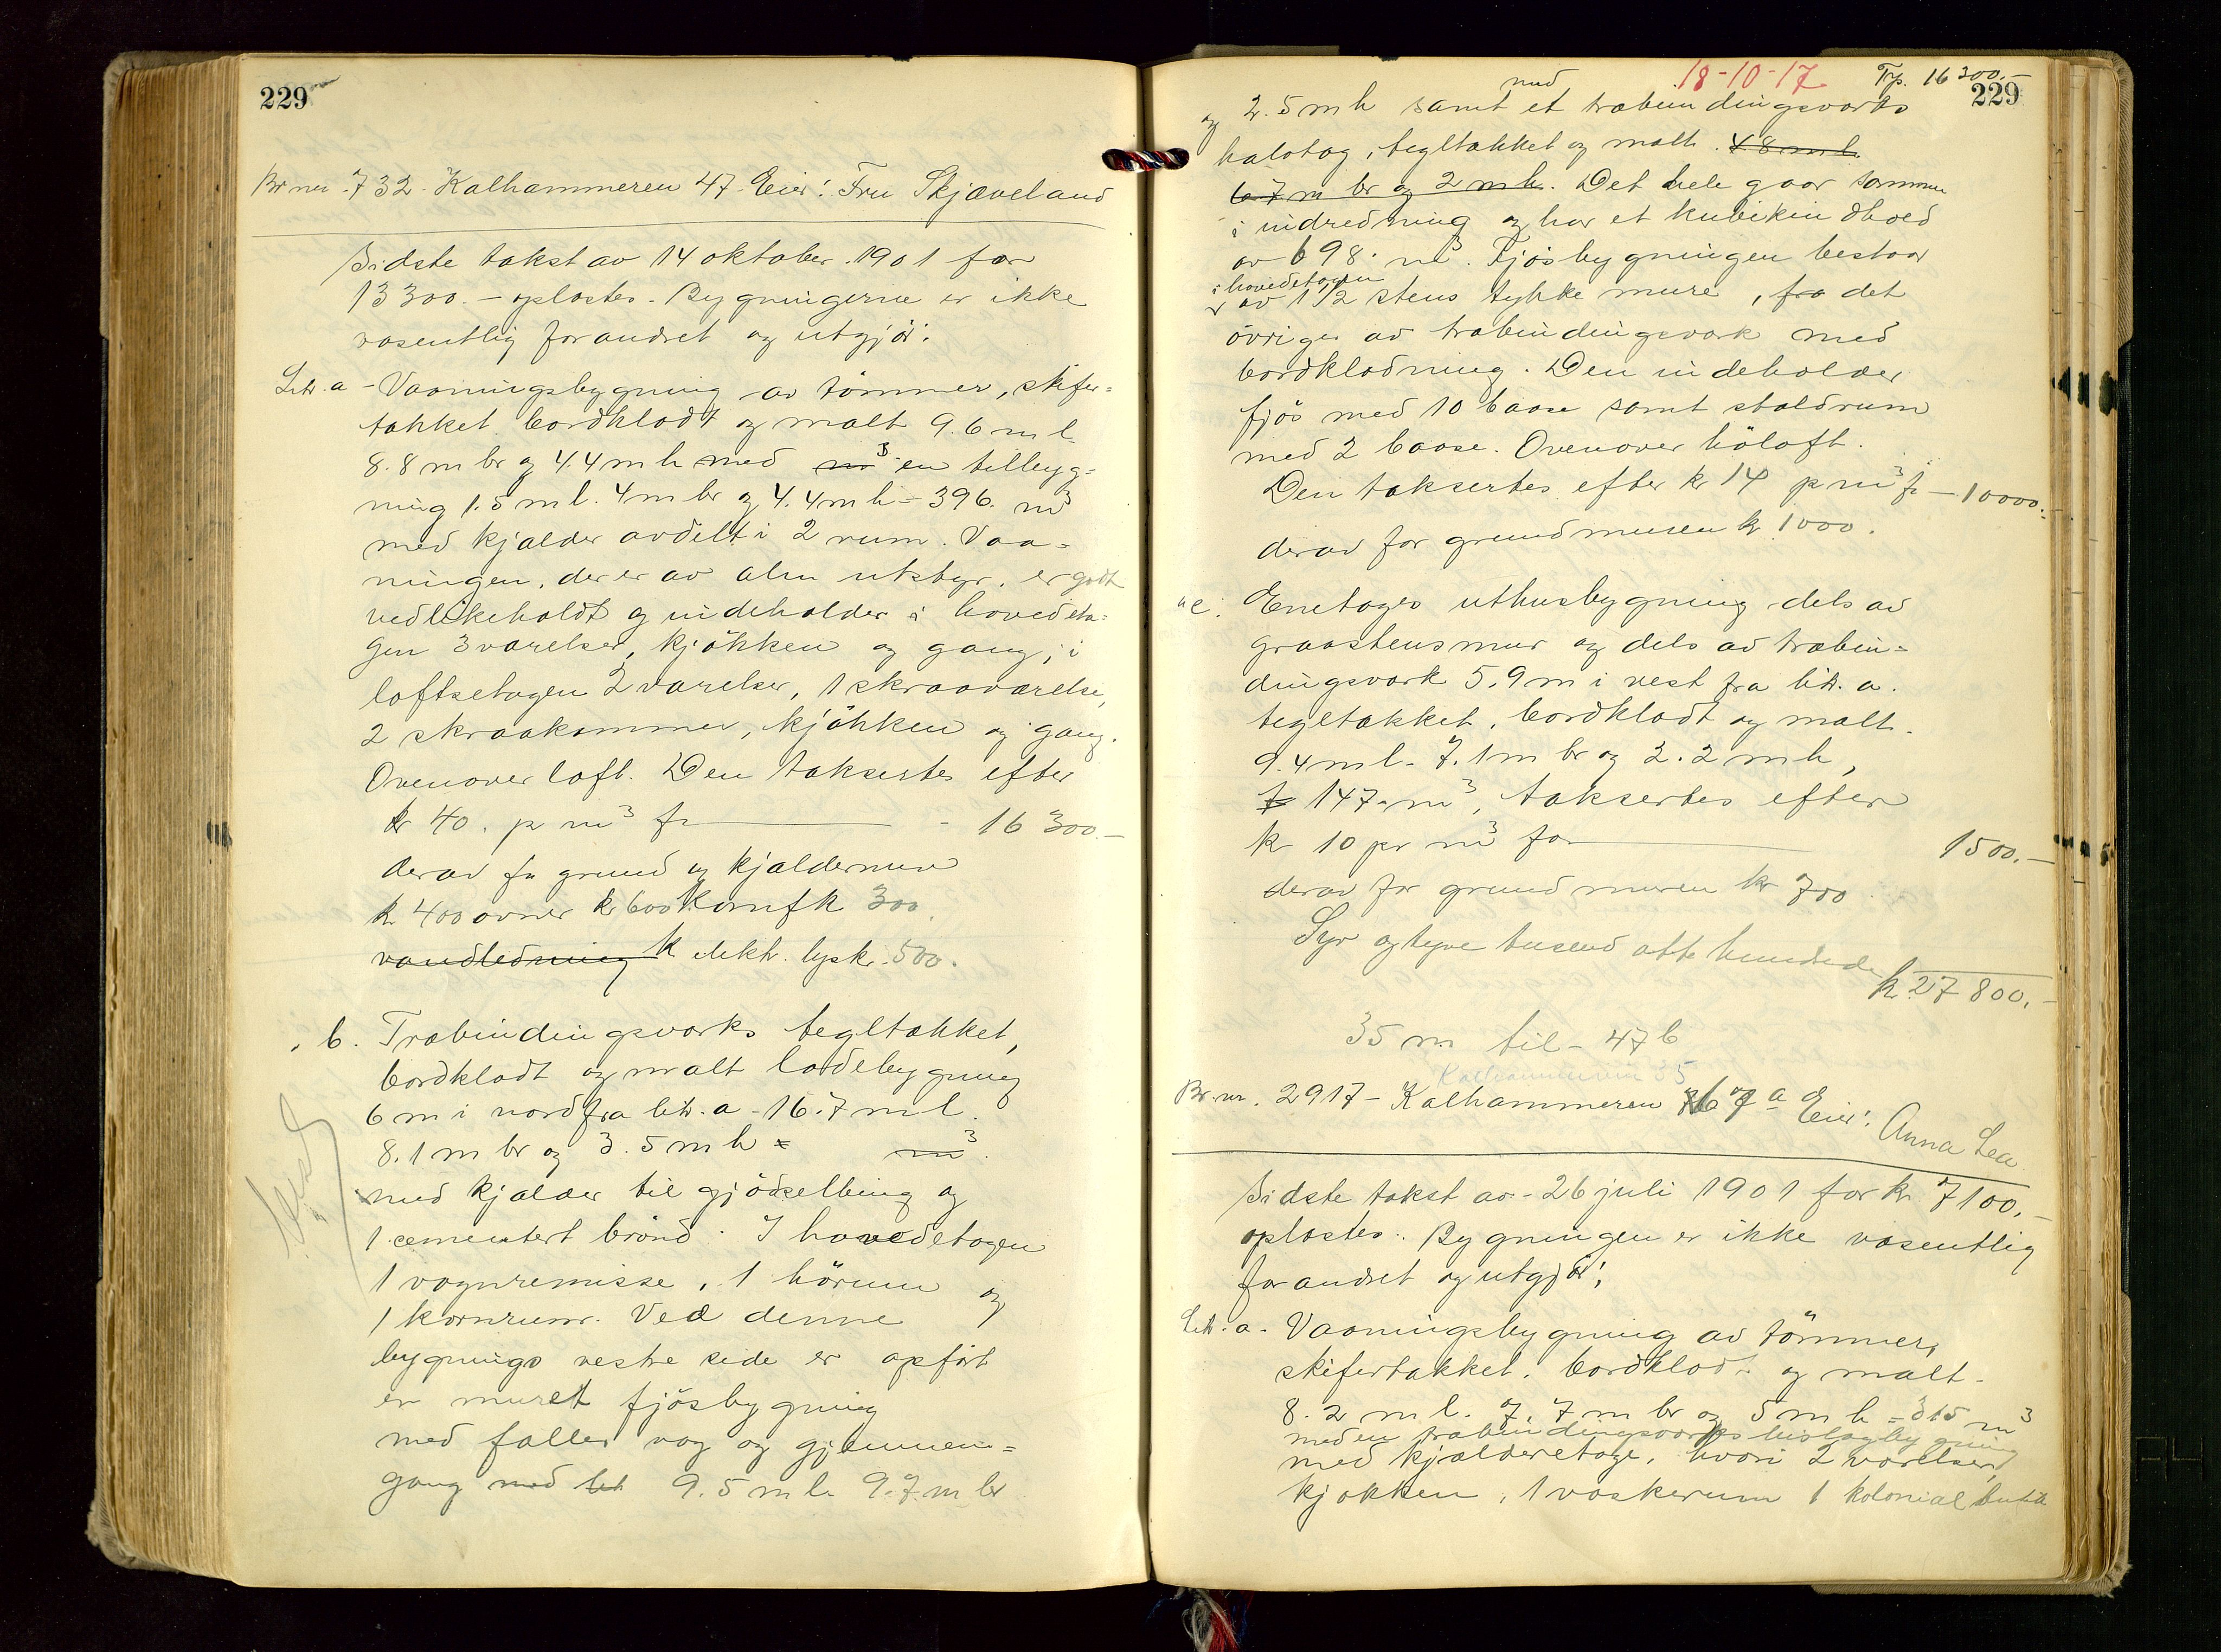 229
Br nr. 732. Kalhammeren 47. Eier: Fru Skjæveland
Sidste takst av 14 oktober 1901 for
13300.- oplæstes. Bygningerne er ikke
væsentlig forandret og utgjör:
Litr. a - Vaaningsbygning av tömmer, skifer=
tækket, bordklædt og malt 9.6 m l.
8.8 m br og 4.4 m h med m³ en tilbyg=
ning 1.5 m l. 4 m br og 4.4 m h = 396. m³
med kjælder avdelt i 2 rum. Vaa=
ningen, der er av alm utstyr, er godt
vedlikeholdt og indeholder i hovedeta=
gen 3 værelser, kjökken og gang; i
loftsetagen 2 værelser, 1 skraaværelse,
2 skraakammer, kjökken og gang.
Ovenover loft. Den taksertes efter
kr 40. pr m³ fr - 16300.-
derav fr grund og kjældermur
kr 400 ovner kr 600 Komf k 300.
vandledning k elektr. lys kr. 500.
" b. Træbindingsverks tegltækket,
bordklædt og malt ladebygning
6 m i nord fra litr. a - 16.7 m l.
8.1 m br og 3.5 m h = m³.
med kjælder til gjödselbing og
1 cementert brönd. I hovedetagen
1 vognremisse, 1 hörum og
1 kornrum. Ved denne
bygnings vestre side er opfört
en muret fjösbygning
med faller væg og gjennem=
gang med let 9.5 m l. 9.7 m br
18-10-17 Trp. 16300.-
229
med
og 2.5 m h samt et træbindingsverks
halvtag, tegltækket og malt. 4.8 m l.
6.7 m br og 2 m h. Det hele gaar sammen
i indredning og har et kubikindhold
av 698. m³. Fjösbygningen bestaar
i hovedetagen
av 1 1/2 stens tykke mure, fra det
övrige av træbindingsverk med
bordklædning. Den indeholder
fjös med 10 baase samt staldrum
med 2 baase. Ovenover höloft.
Den taksertes efter kr 14 pr m³ fr - 10000.-
derav for grundmuren kr 1000.
" c. Enetages uthusbygning dels av
graastensmur og dels av træbin=
dingsverk 5.9 m i vest fra litr. a.
tegltækket, bordklædt og malt.
9.4 m l. 7.1 m br og 2.2 m h,
147. m³, taksertes efter
kr 10 pr m³ for 1500.-
derav for grundmuren kr 700
Syv og tyve tusend otte hundrede
kr. 27800.-
35 m til - 47 b
Kalhammervn 35
Br. nr. 2917 - Kalhammeren 67 a Eier: Anna Lea
Sidste takst av - 26 juli 1901 for kr. 7100.-
oplæstes. Bygningen er ikke væsentlig
forandret og utgjör:
Litr. a. Vaaningsbygning av tömmer,
skifertækket, bordklædt og malt.
8.2 m l. 7.7 m br og 5 m h = 315 m³
med en træbindingsverks bislagbygning
med kjælderetage, hvori 2 værelser,
kjøkken, 1 vaskerum 1 kolonial butik